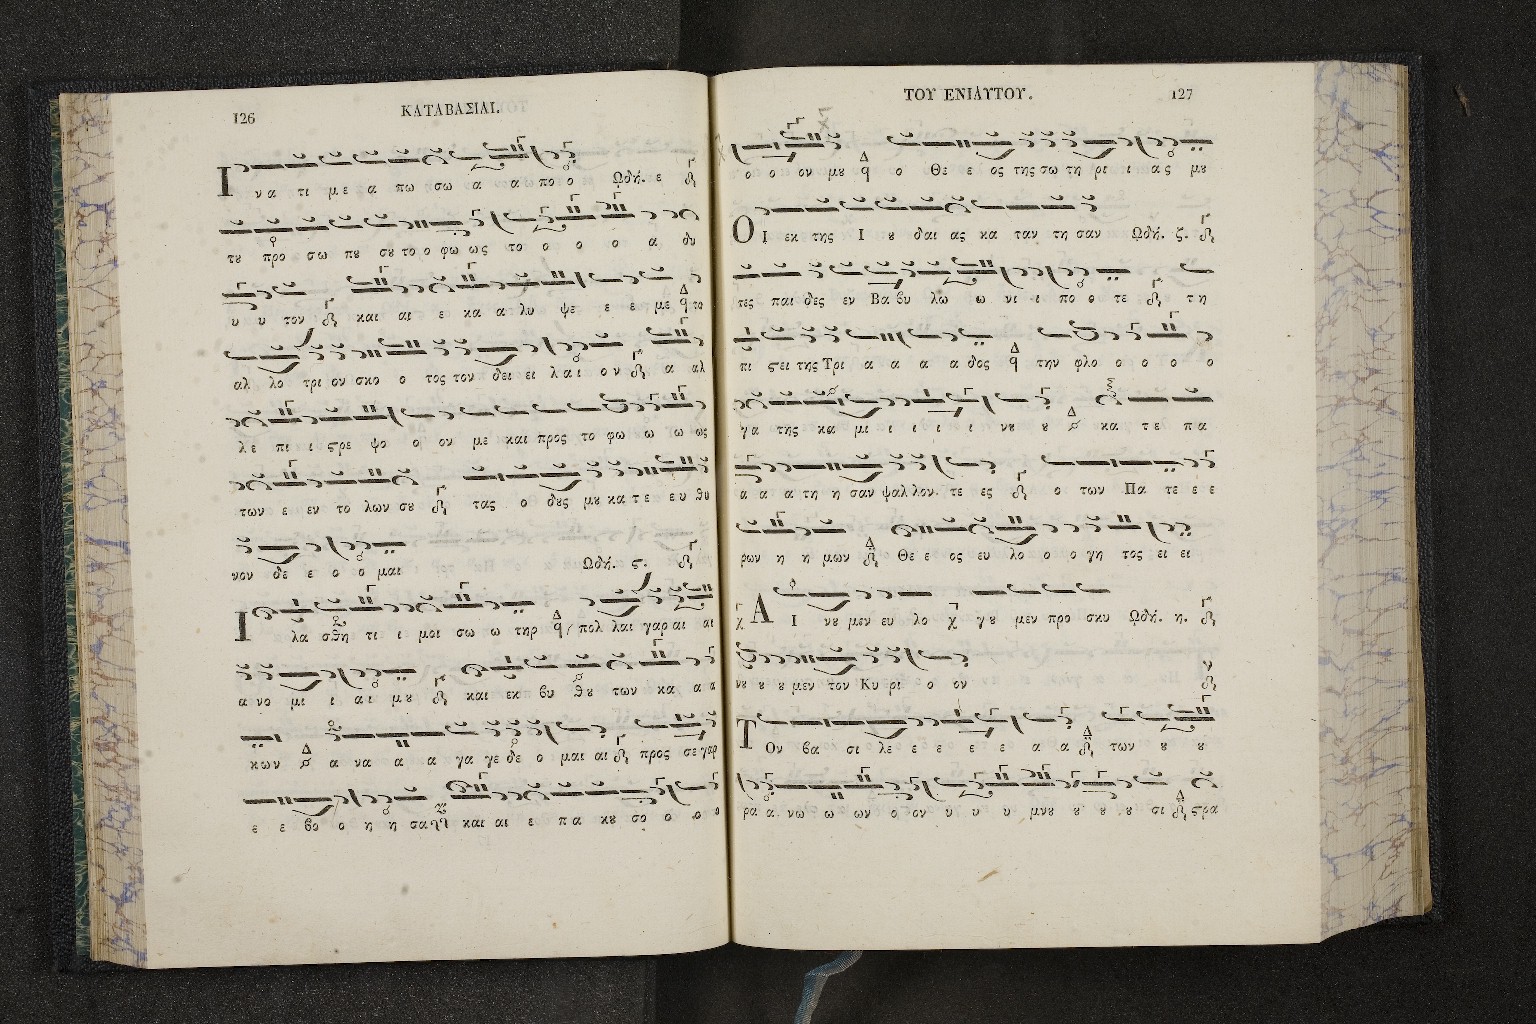 126
ΚΑΤΑΒΑΣΙΑΙ.
Ι να τι με α πω σω α α πο ο Ωδή. ε
τȣ προ σω πȣ σȣ το ο φω ως το ο ο ο α δυ
υ υ τον και αι ε κα α λυ ψε ε ε με το
αλ λο τρι ον σκο ο τος τον δει ει λαι ον α αλ
λε πι ι ϛρε ψο ο ον με και προς το φω ω ω ως
των ε εν το λων σȣ τας ο δȣς μȣ κα τε ευ θυ
νον δε ε ο ο μαι Ωδή. ϛ.
Ι λα σθη τι ι μοι σω ω τηρ πολ λαι γαρ αι αι
α νο μι ι αι μȣ και εκ βυ θȣ των κα α α
κων α να α α γα γε δε ο μαι αι προς σε γαρ
ε ε βο ο η η σα και αι ε πα κȣ σο ο ο ο
ΤΟΥ ΕΝΙΑΥΤΟΥ.
127
ο ο ον μȣ ο Θε ε ος της σω τη ρι ι ας μȣ
Ο Ι εκ της Ι ȣ δαι ας κα ταν τη σαν Ωδή. ζ.
τες παι δες εν Βα βυ λω ω νι ι πο ο τε τη
πι ϛει της Τρι α α α α δος την φλο ο ο ο ο
γα της κα μι ι ι ι ι νȣ ȣ κα τε πα
α α α τη η σαν ψαλ λον τε ες ο των Πα τε ε ε
ρων η η μων Θε ε ος ευ λο ο ο γη τος ει ει
Α Ι νȣ μεν ευ λο γȣ μεν προ σκυ Ωδή. η.
νȣ ȣ ȣ μεν τον Κυ ρι ο ον
Τ Ον βα σι λε ε ε ε ε ε α α των ȣ ȣ
ρα α νω ω ων ο ον υ υ υ μνȣ ȣ ȣ ȣ σι ϛρα